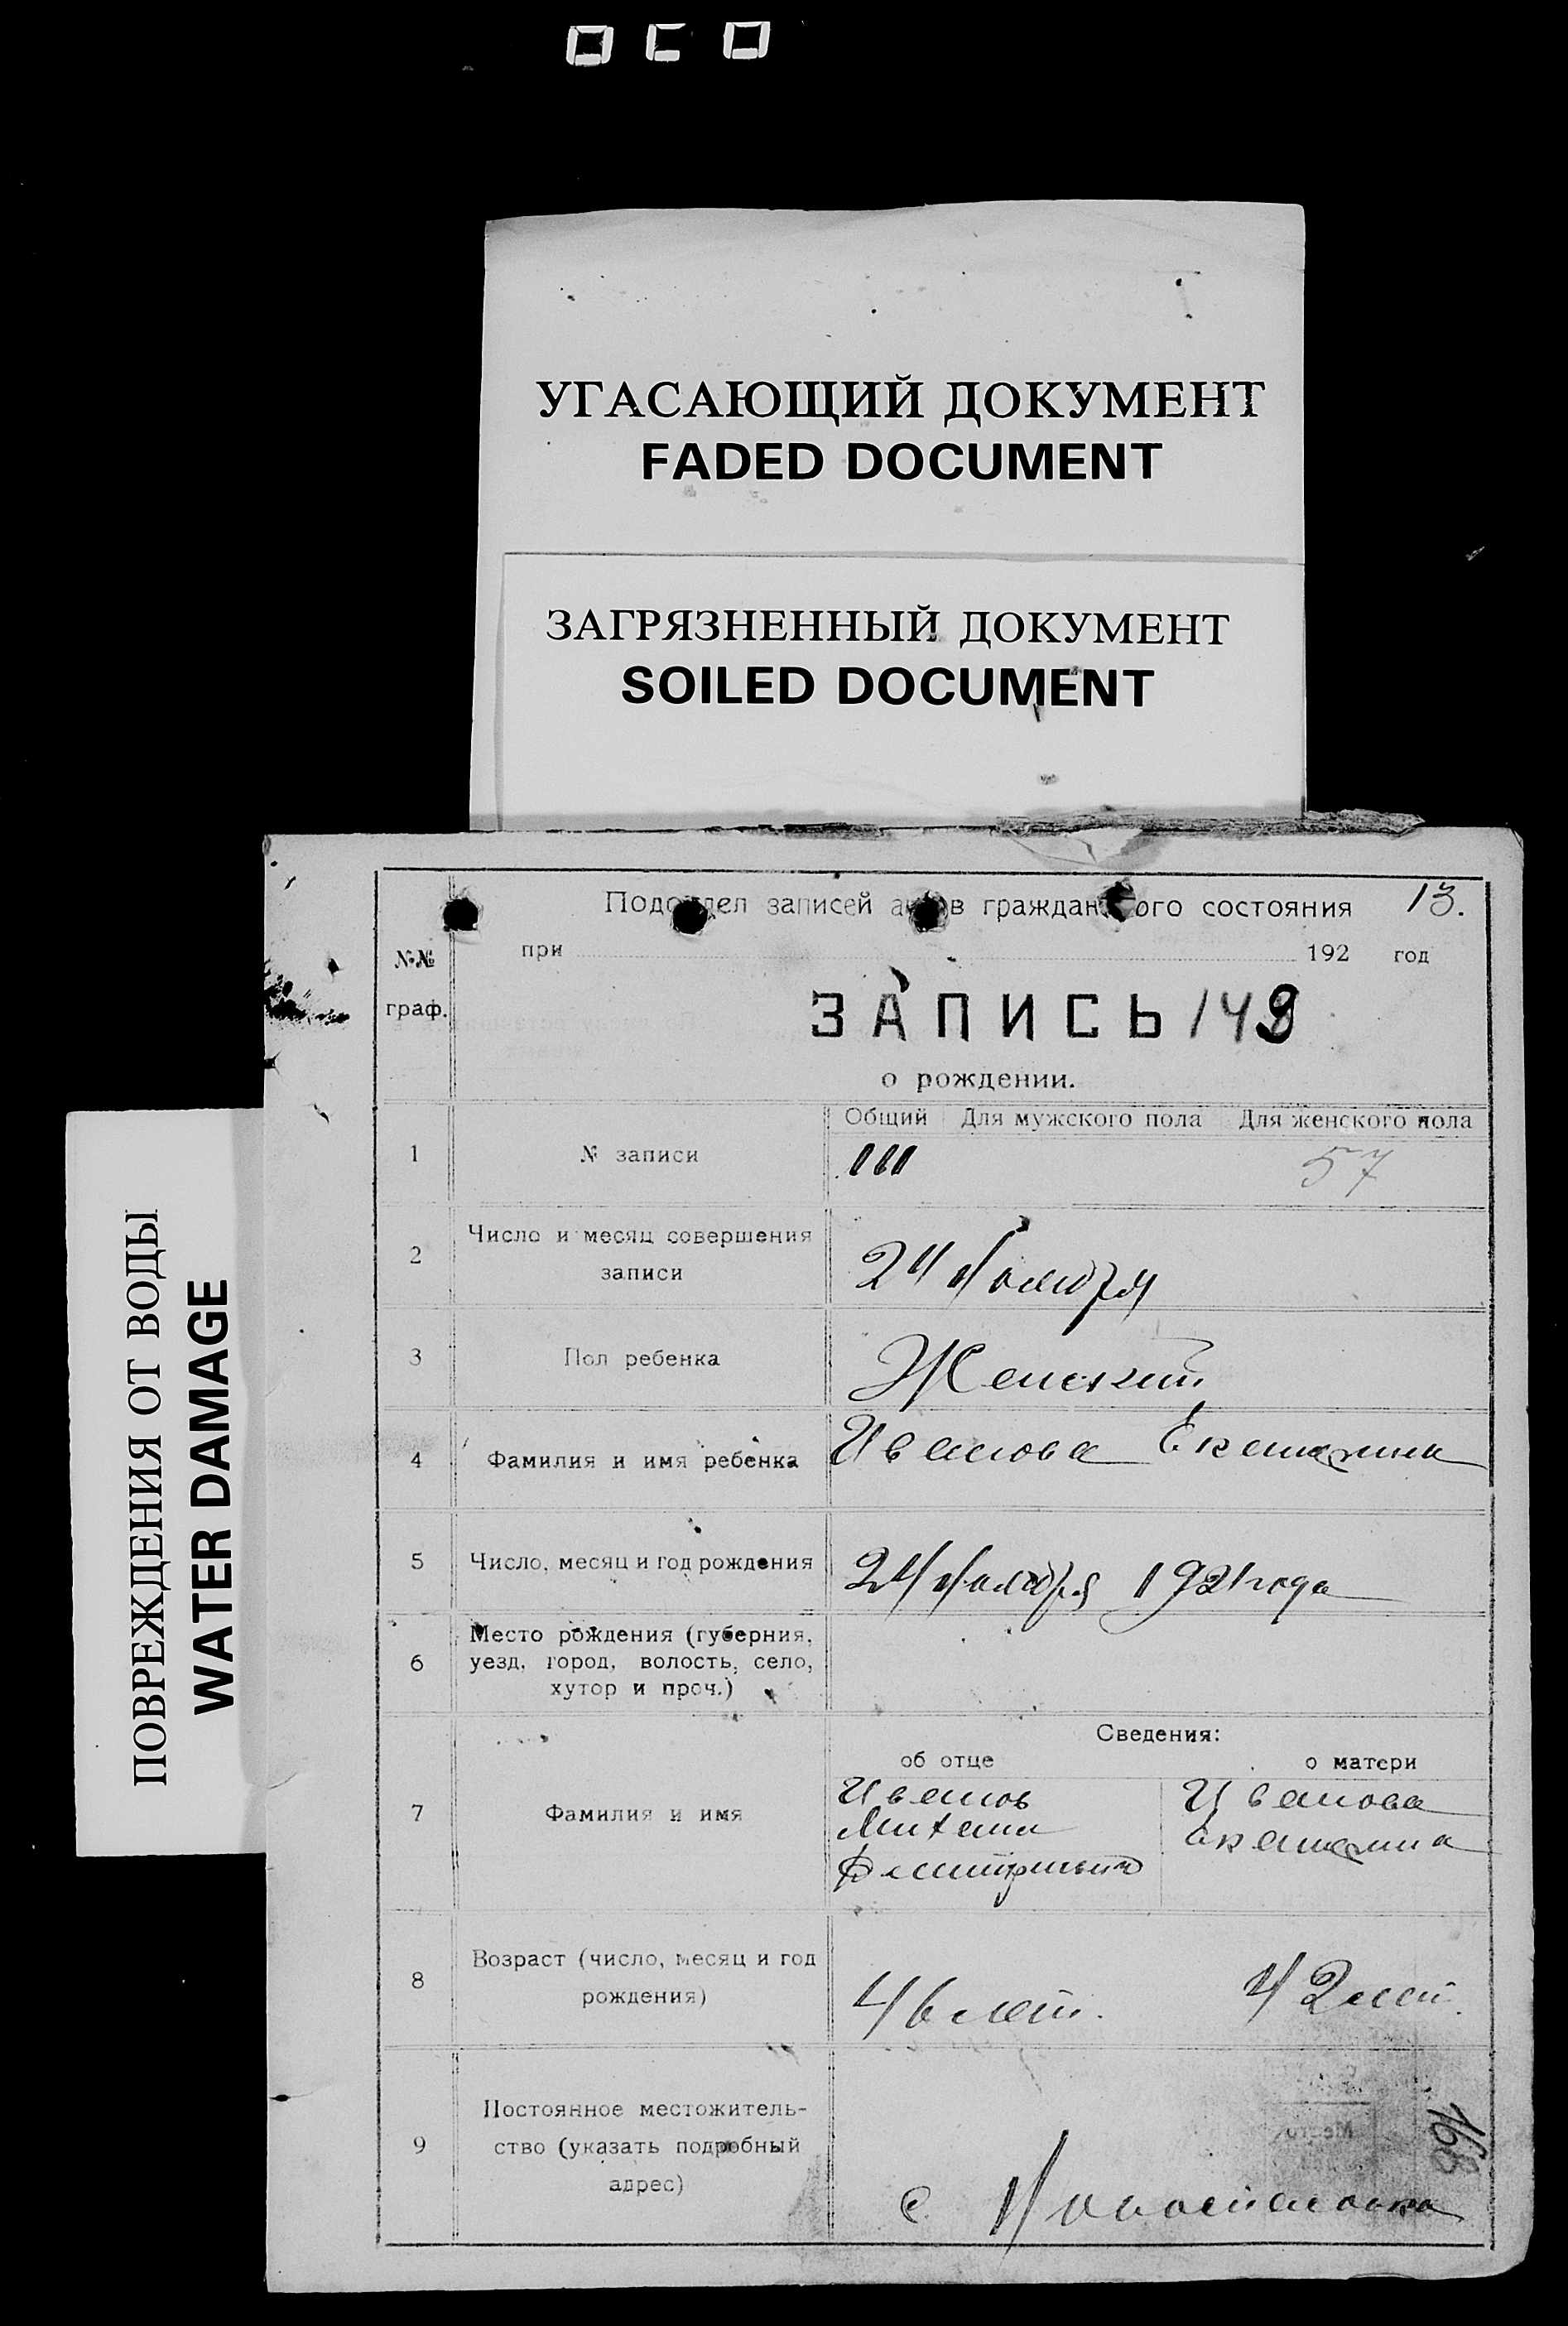 УГАСАЮЩИЙ ДОКУМЕНТ
FADED DOCUMENT
ЗАГРЯЗНЕННЫЙ ДОКУМЕНТ
SOILED DOCUMENT
ПОВРЕЖДЕНИЯ ОТ ВОДЫ
WATER DAMAGE
Подотдел записей актов гражданского состояния 13.
№№ граф.
при 192 год
ЗАПИСЬ 149
о рождении.
Общий Для мужского пола Для женского пола
1 № записи 57
2 Число и месяц совершения записи 24 Ноября
3 Пол ребенка Женский
4 Фамилия и имя ребенка Иванова Екатерина
5 Число, месяц и год рождения 24 Ноября 1921 года
6 Место рождения (губерния, уезд, город, волость, село, хутор и проч.)
Сведения:
об отце о матери
7 Фамилия и имя
Иванов Иванова
Михаил Екатерина
8 Возраст (число, месяц и год рождения) 46 лет. 42 лет.
9 Постоянное местожитель-
ство (указать подробный
адрес)
с.
168